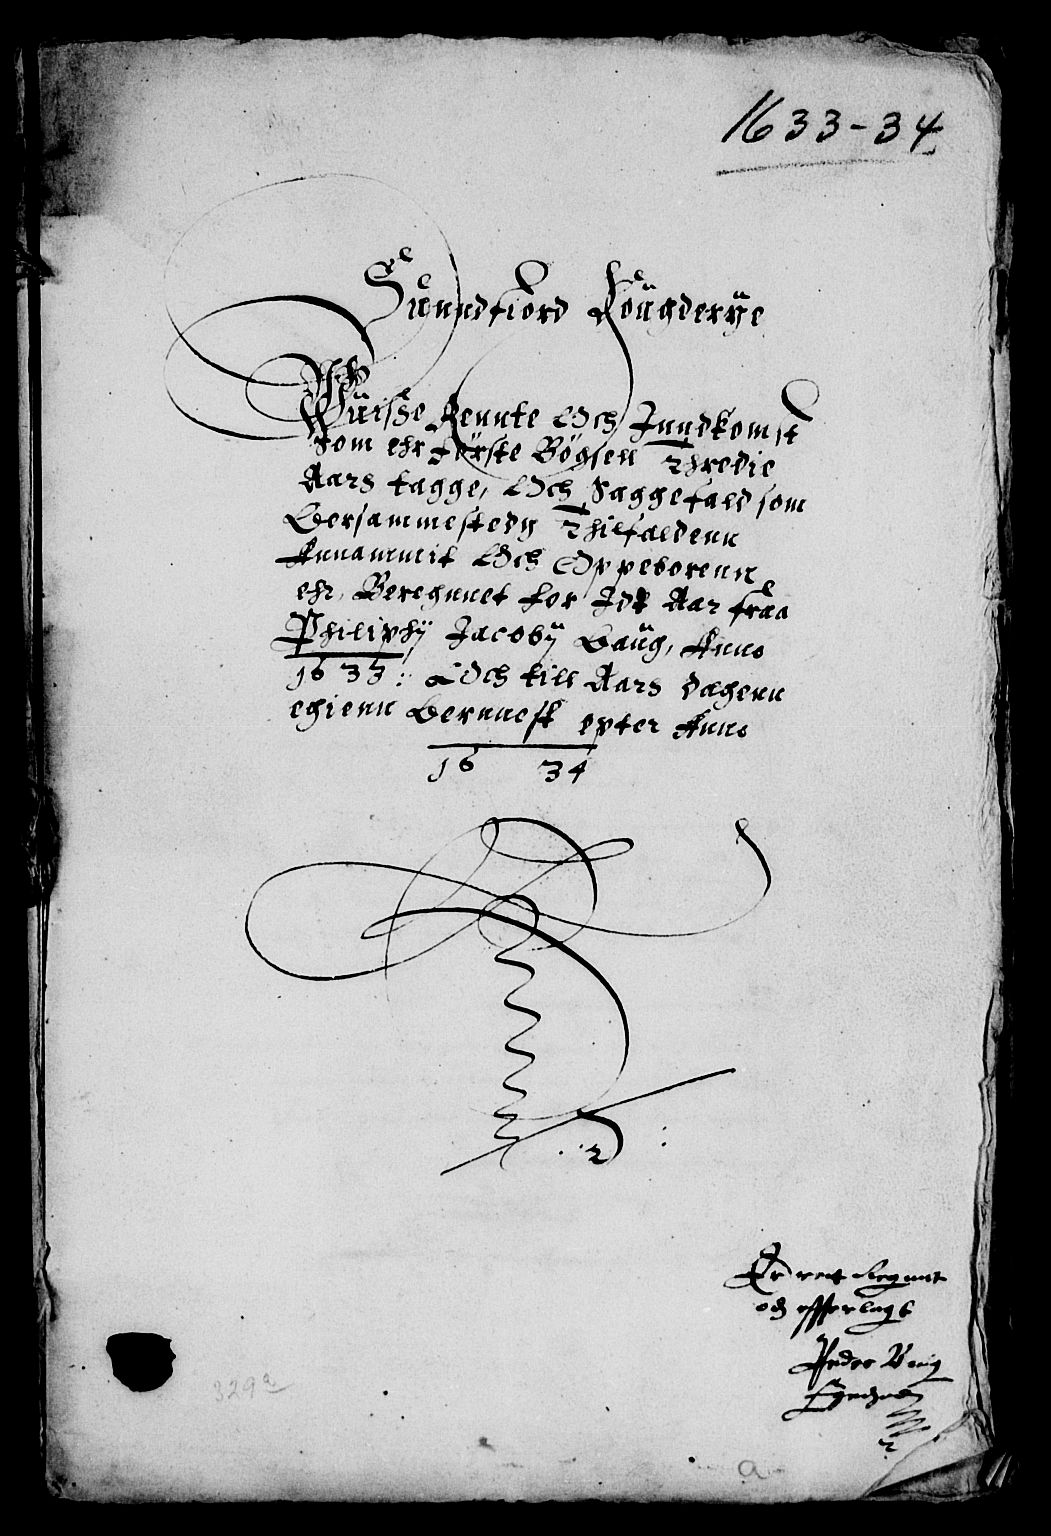 1633-34
Sünndfiord Fougderÿe
Wüisße Rennte Och Inndkomst
som ehr Förste Bögsell Thredie
Aars tagge, Och Saggefald som
Ver sammestedtz Thilfaldenn
Annammit Och Oppeborenn
ehr, Beregnnet for Idt Aar fraa
Philiphj Jacobÿ Daüg, Anno
1633: Och till Aars dagenn
egienn Vernnest epter Anno
1634
och effterlagt
Peder
329a
a